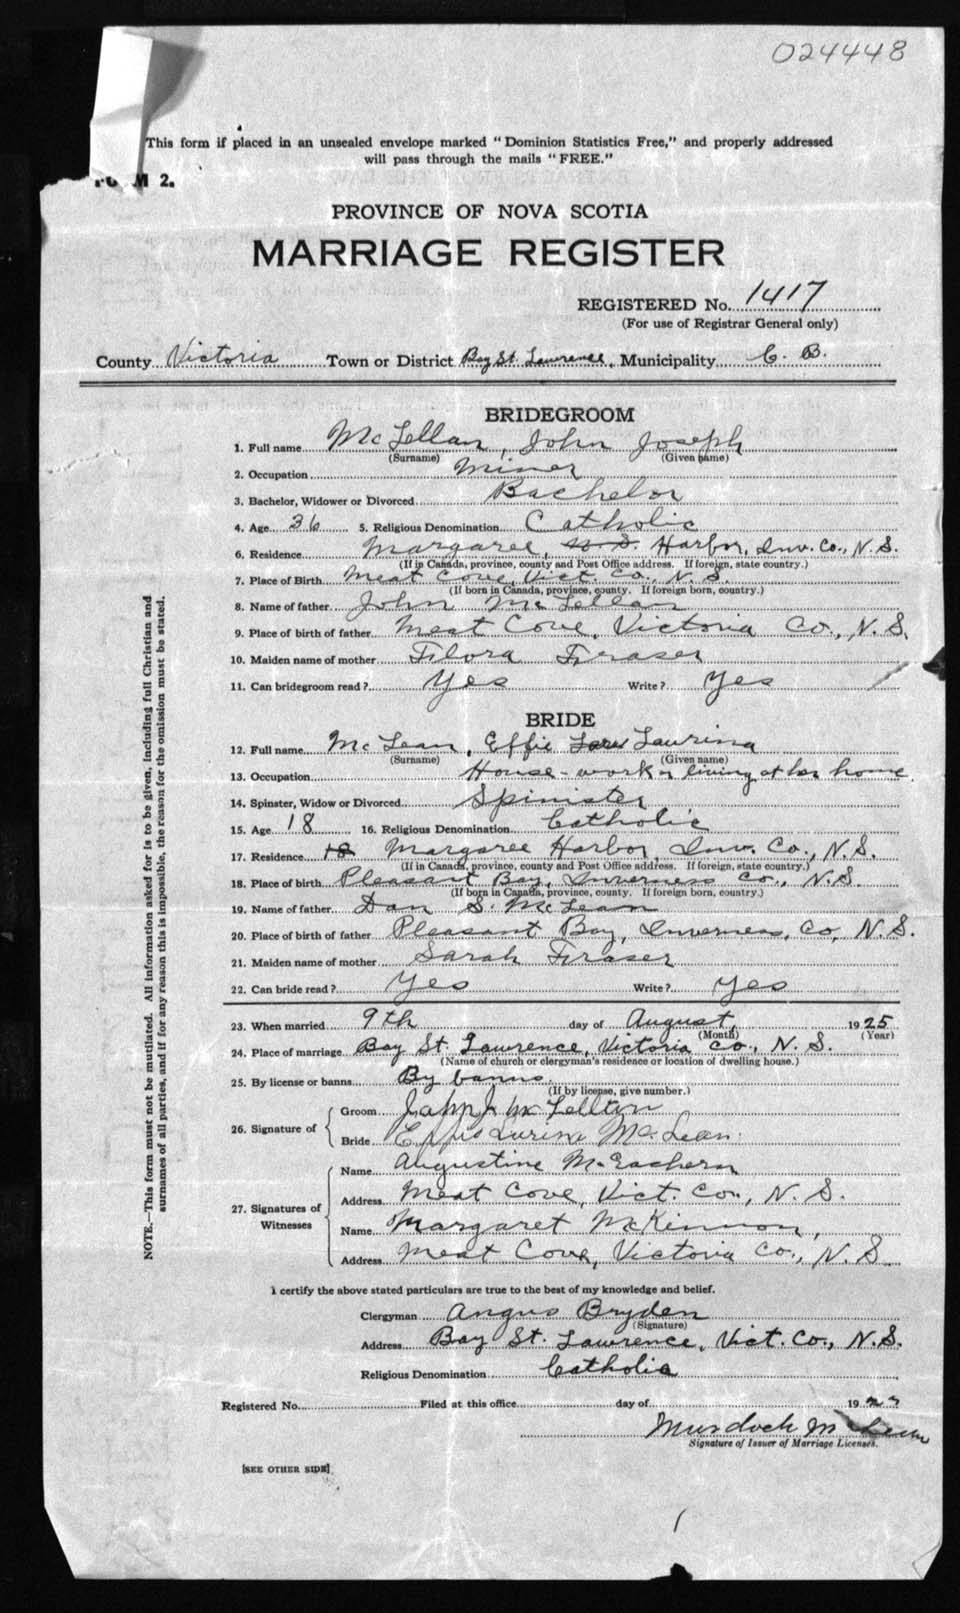 024448
This form if placed in an unsealed envelope marked "Dominion Statistics Free," and properly addressed
will pass through the mails "FREE."
FORM 2.
PROVINCE OF NOVA SCOTIA
MARRIAGE REGISTER
REGISTERED No. 1417
(For use of Registrar General only)
County Victoria Town or District Bay St. Lawrence, Municipality C. B.
BRIDEGROOM
1. Full name McLellan, John Joseph
(Surname) (Given name)
2. Occupation Miner
3. Bachelor, Widower or Divorced Bachelor
4. Age 36 5. Religious Denomination Catholic
6. Residence Margaree, Harbor, Inv. Co., N. S.
(If in Canada, province, county and Post Office address. If foreign, state country.)
7. Place of Birth Meat Cove, Vict. Co., N. S.
(If born in Canada, province, county. If foreign born, country.)
8. Name of father John McLellan
9. Place of birth of father Meat Cove, Victoria Co., N. S.
10. Maiden name of mother Flora Fraser
11. Can bridegroom read? Yes Write? Yes
BRIDE
12. Full name McLean, Effie Laurina
(Surname) (Given name)
13. Occupation House-work living at her home
14. Spinster, Widow or Divorced Spinister
15. Age 18 16. Religious Denomination Catholic
17. Residence 18 Margaree Harbor, Inv. Co., N. S.
(If in Canada, province, county and Post Office address. If foreign, state country.)
18. Place of birth Pleasant Bay, Inverness Co., N. S.
(If born in Canada, province, county. If foreign born, country.)
19. Name of father Dan S. McLean
20. Place of birth of father Pleasant Bay, Inverness, Co, N. S.
21. Maiden name of mother Sarah Fraser
22. Can bride read? Yes Write? Yes
23. When married 9th day of August, 1925
(Month) (Year)
24. Place of marriage Bay St. Lawrence, Victoria Co., N. S.
(Name of church or clergyman's residence or location of dwelling house.)
25. By license or banns By banns.
(If by license, give number.)
26. Signature of
Groom John J McLellan
Bride Effie Lurina McLean
27. Signatures of Witnesses
Name Augustine McEachern
Address Meat Cove, Vict. Co., N. S.
Name Margaret McKinnon,
Address Meat Cove, Victoria Co., N. S.
I certify the above stated particulars are true to the best of my knowledge and belief.
Clergyman Angus Bryden
(Signature)
Address Bay St. Lawrence, Vict. Co., N. S.
Religious Denomination Catholic
Registered No. Filed at this office day of 192
Murdoch McLean
Signature of Issuer of Marriage Licenses.
[SEE OTHER SIDE]
NOTE.—This form must not be mutilated. All information asked for is to be given, including full Christian and
surnames of all parties, and if for any reason this is impossible, the reason for the omission must be stated.